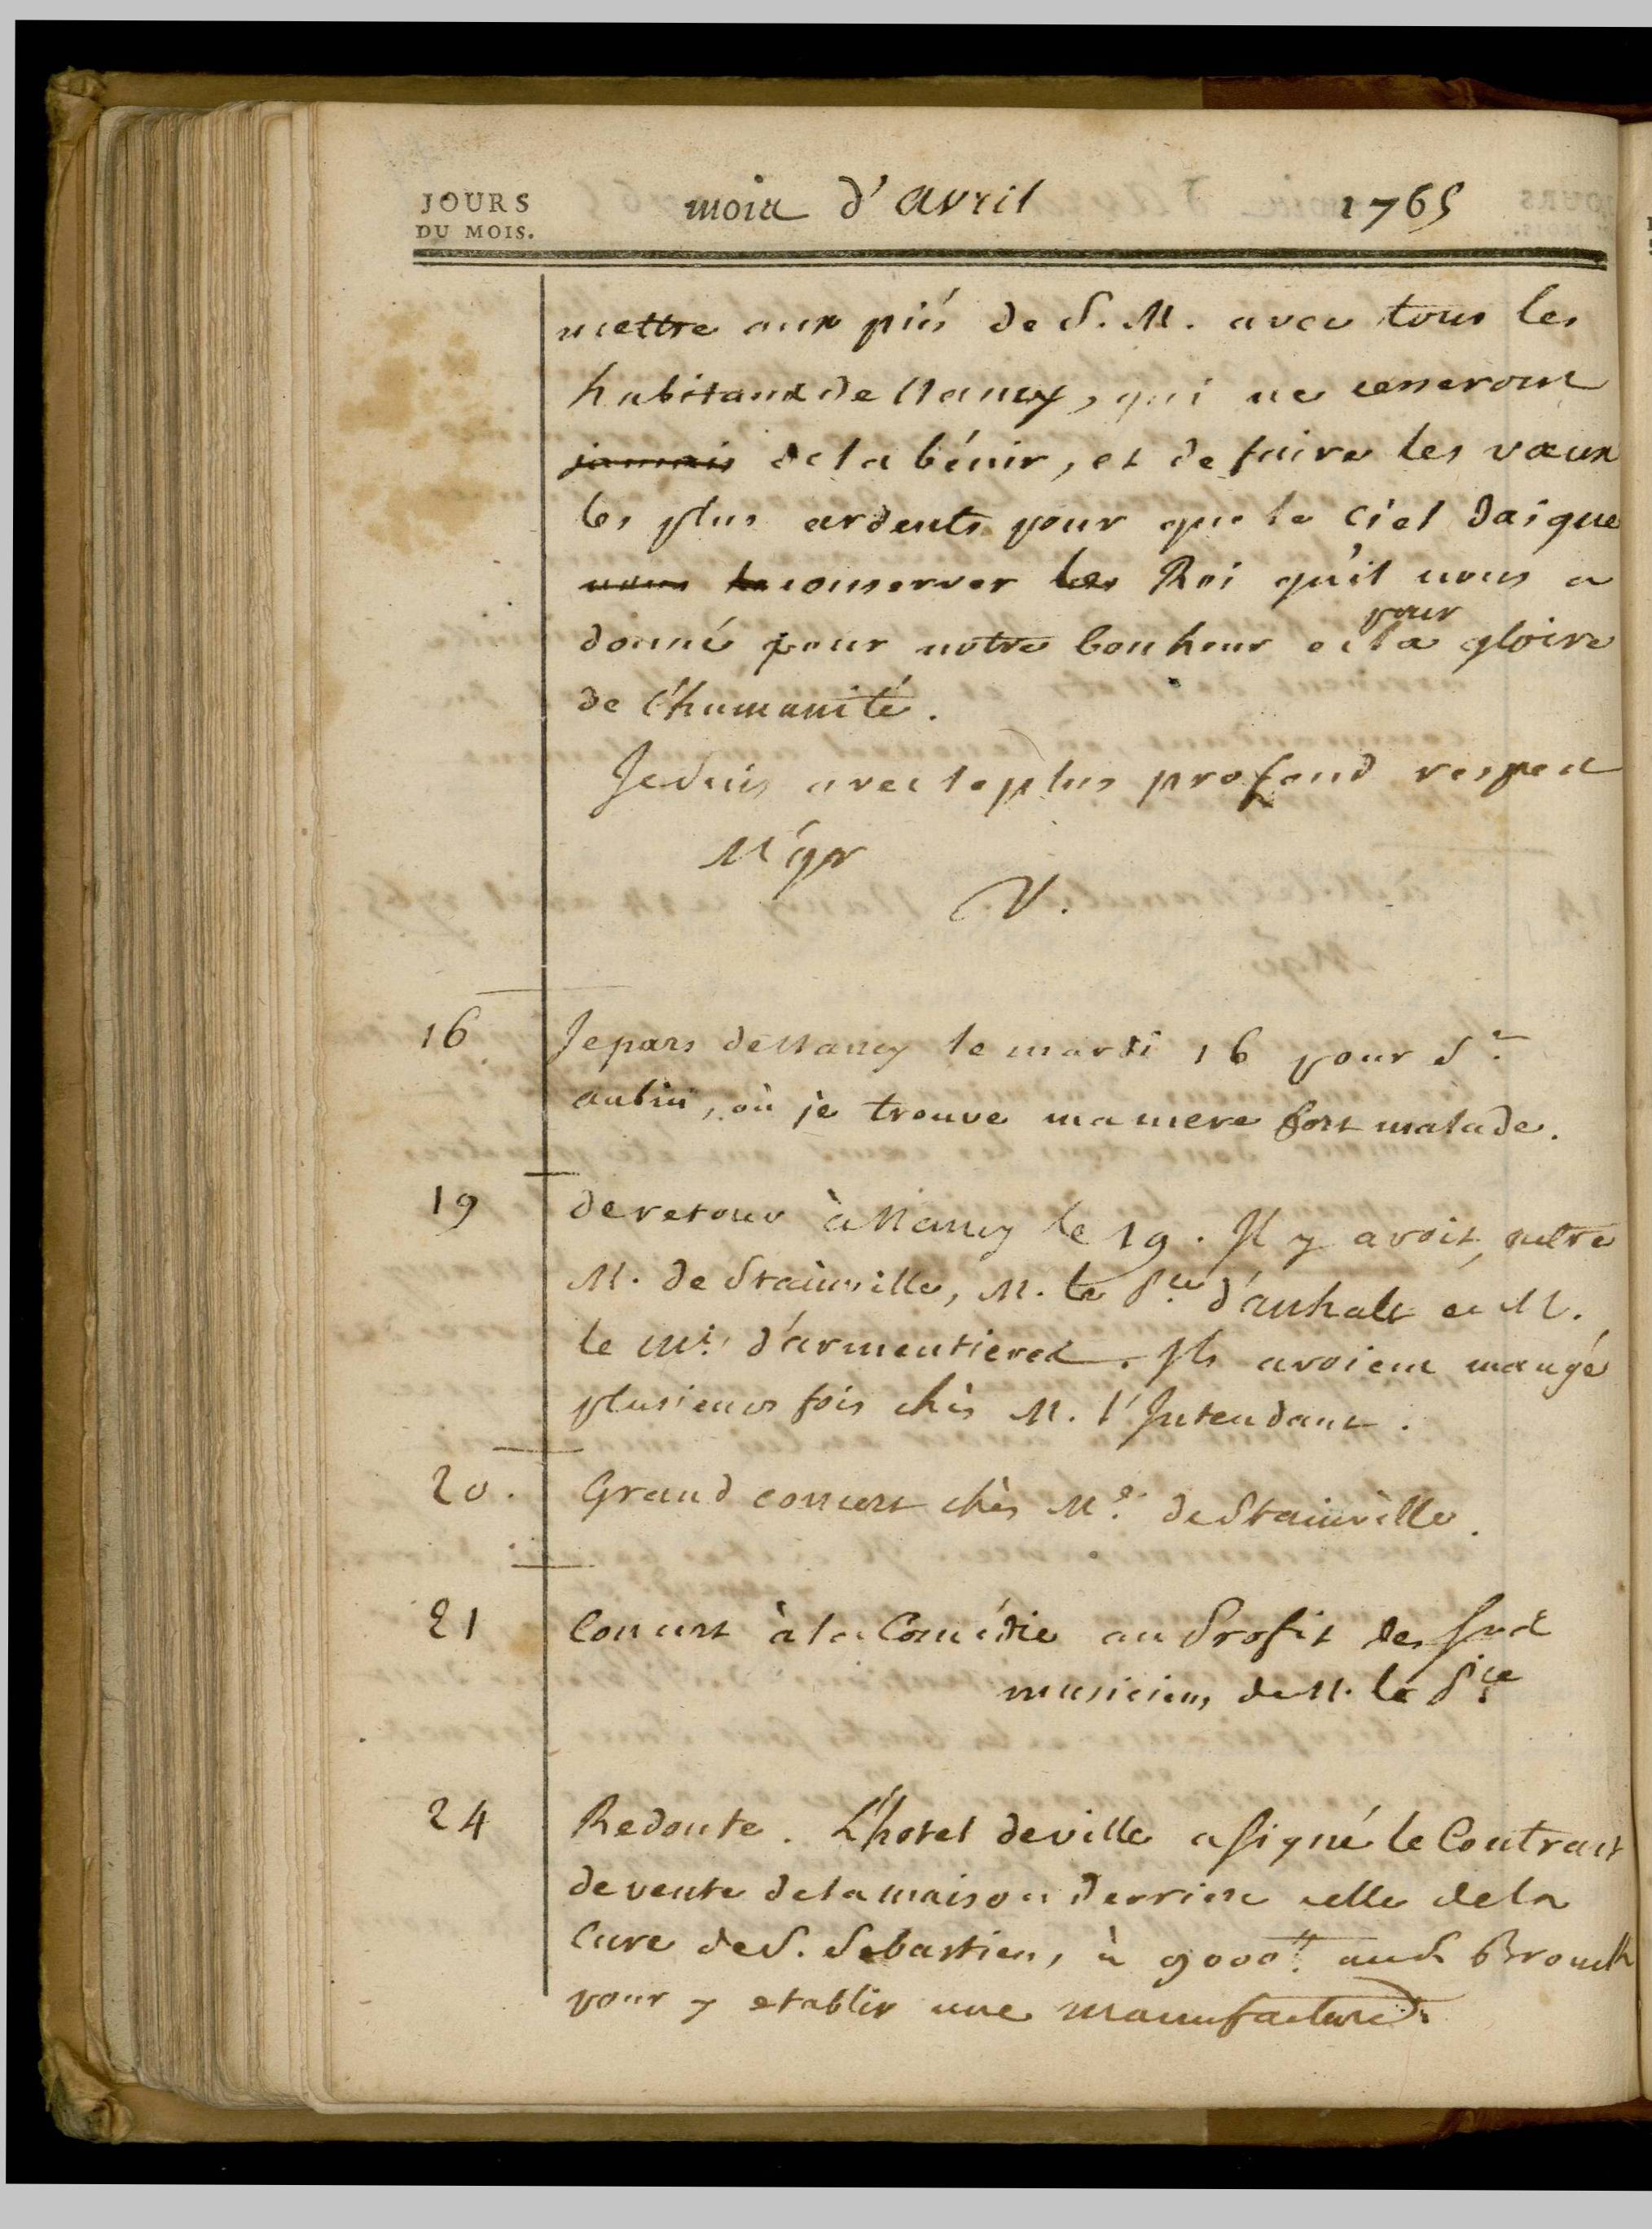 JOURS
DU MOIS.
mois d'avril 1765
mettre aux piés de S. M. avec tous les
habitans de Nancy, qui ne cesseront
jamais de la bénir, et de faire les vœux
les plus ardents pour que le Ciel daigne
nous le conserver le Roi qu'il nous a
donné pour notre bonheur et pour la gloire
de l'humanité.
Je suis avec le plus profond respect
M'gr
V.
16 Je pars de Nancy le mardi 16 pour St.
aubin, où je trouve ma mere fort malade.
19 de retour à Nancy le 19. Il y avoit, outre
M. de Stainville, M. le Pce d'anhalt et M.
le Mis. d'armentieres. Ils avoient mangé
plusieurs fois chès M. l'Intendant.
20. Grand concert chès Me. de Stainville.
21 Concert à la Comédie au Profit des
musiciens de M. le Pce
24 Redoute. L'hotel de ville a signé le Contract
de vente de la maison derriere celle de la
Cure de S. Sebastien, à 9000tt. au S.
pour y etablir une manufacture.